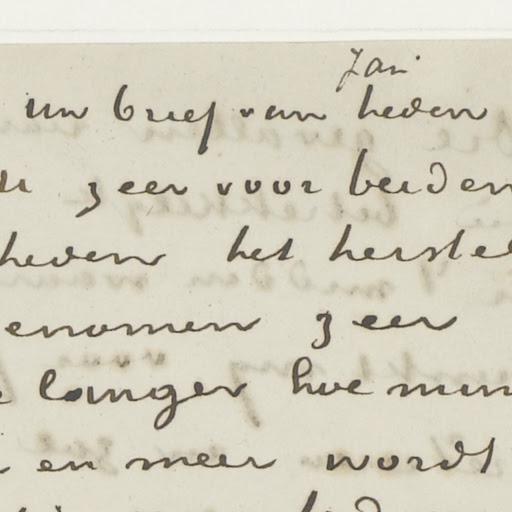 Jan
un brief van heden
u zeer voor beiden
heden het herstel
enomen zeer
langer hoe min
en meer wordt